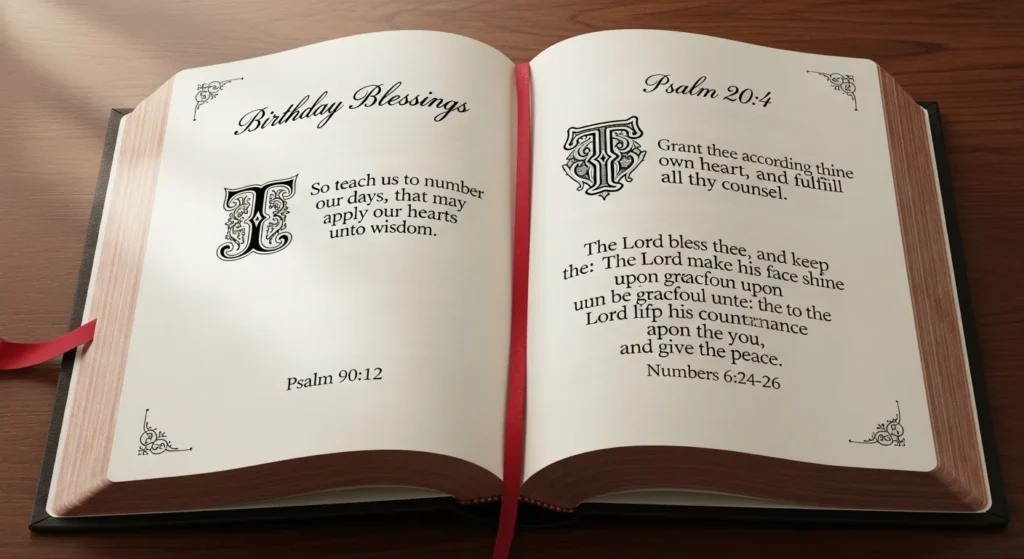 Birthday Blessings
T
So teach us to number
our days, that may
apply our hearts
unto wisdom.
Psalm 90:12
Psalm 20:4
T
Grant thee according thine
own heart, and fulfiill
all thy counsel.
The Lord bless thee, and keep
the: The Lord make his face shine
upon gracfoun upon
uun be gracfoul unte: the to the
Lord lifp his countrnance
apon the you,
and give the peace.
Numbers 6:24-26